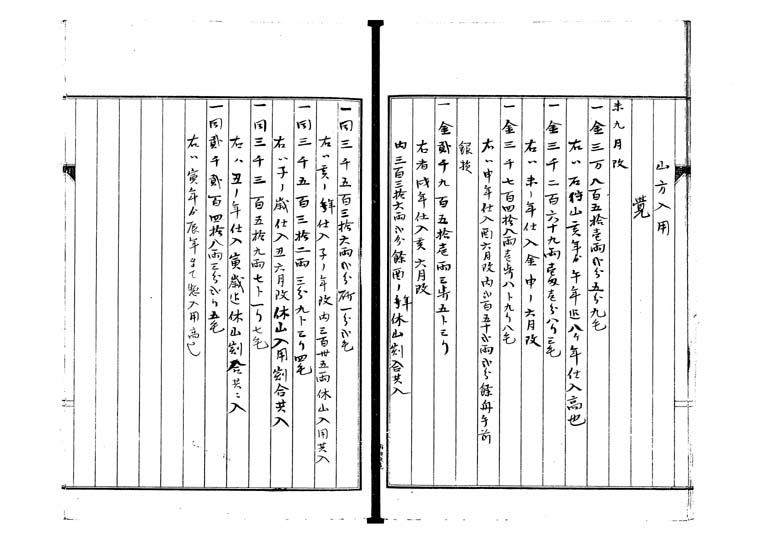 山方入用
覚
未九月改
一金三万八百五拾壱両弐分五分九毛
右ハ石狩山亥年ゟ午年迄八ケ年仕入高也
一金三千二百六十九両壱分八リ三毛
右ハ未ノ年仕入金申ノ六月改
一金三千七百四拾八両壱歩八ト九リ八毛
右ハ申年仕入酉六月改内弐百五十弐両弐分餘舟午前
銀拔
一金貳千九百五拾壱両三歩五ト三リ
右者戌年仕入亥六月改
内三百三拾六両弐分餘酉ノ年休山割合共入
一同三千五百三拾六両弐分一分弐毛
右ハ亥ノ年仕入子ノ年改内三百丗五両休山入用共入
一同三千五百三拾二両三分九ト三リ四毛
右ハ子ノ歳仕入丑六月改休山入用割合共入
一同三千三百五拾九両七ト一リ七毛
右ハ丑ノ年仕入寅歳迄休山割合共ニ入
一同貳千貳百四拾八両三分弐リ五毛
右ハ寅年ゟ辰年まて惣入用高也